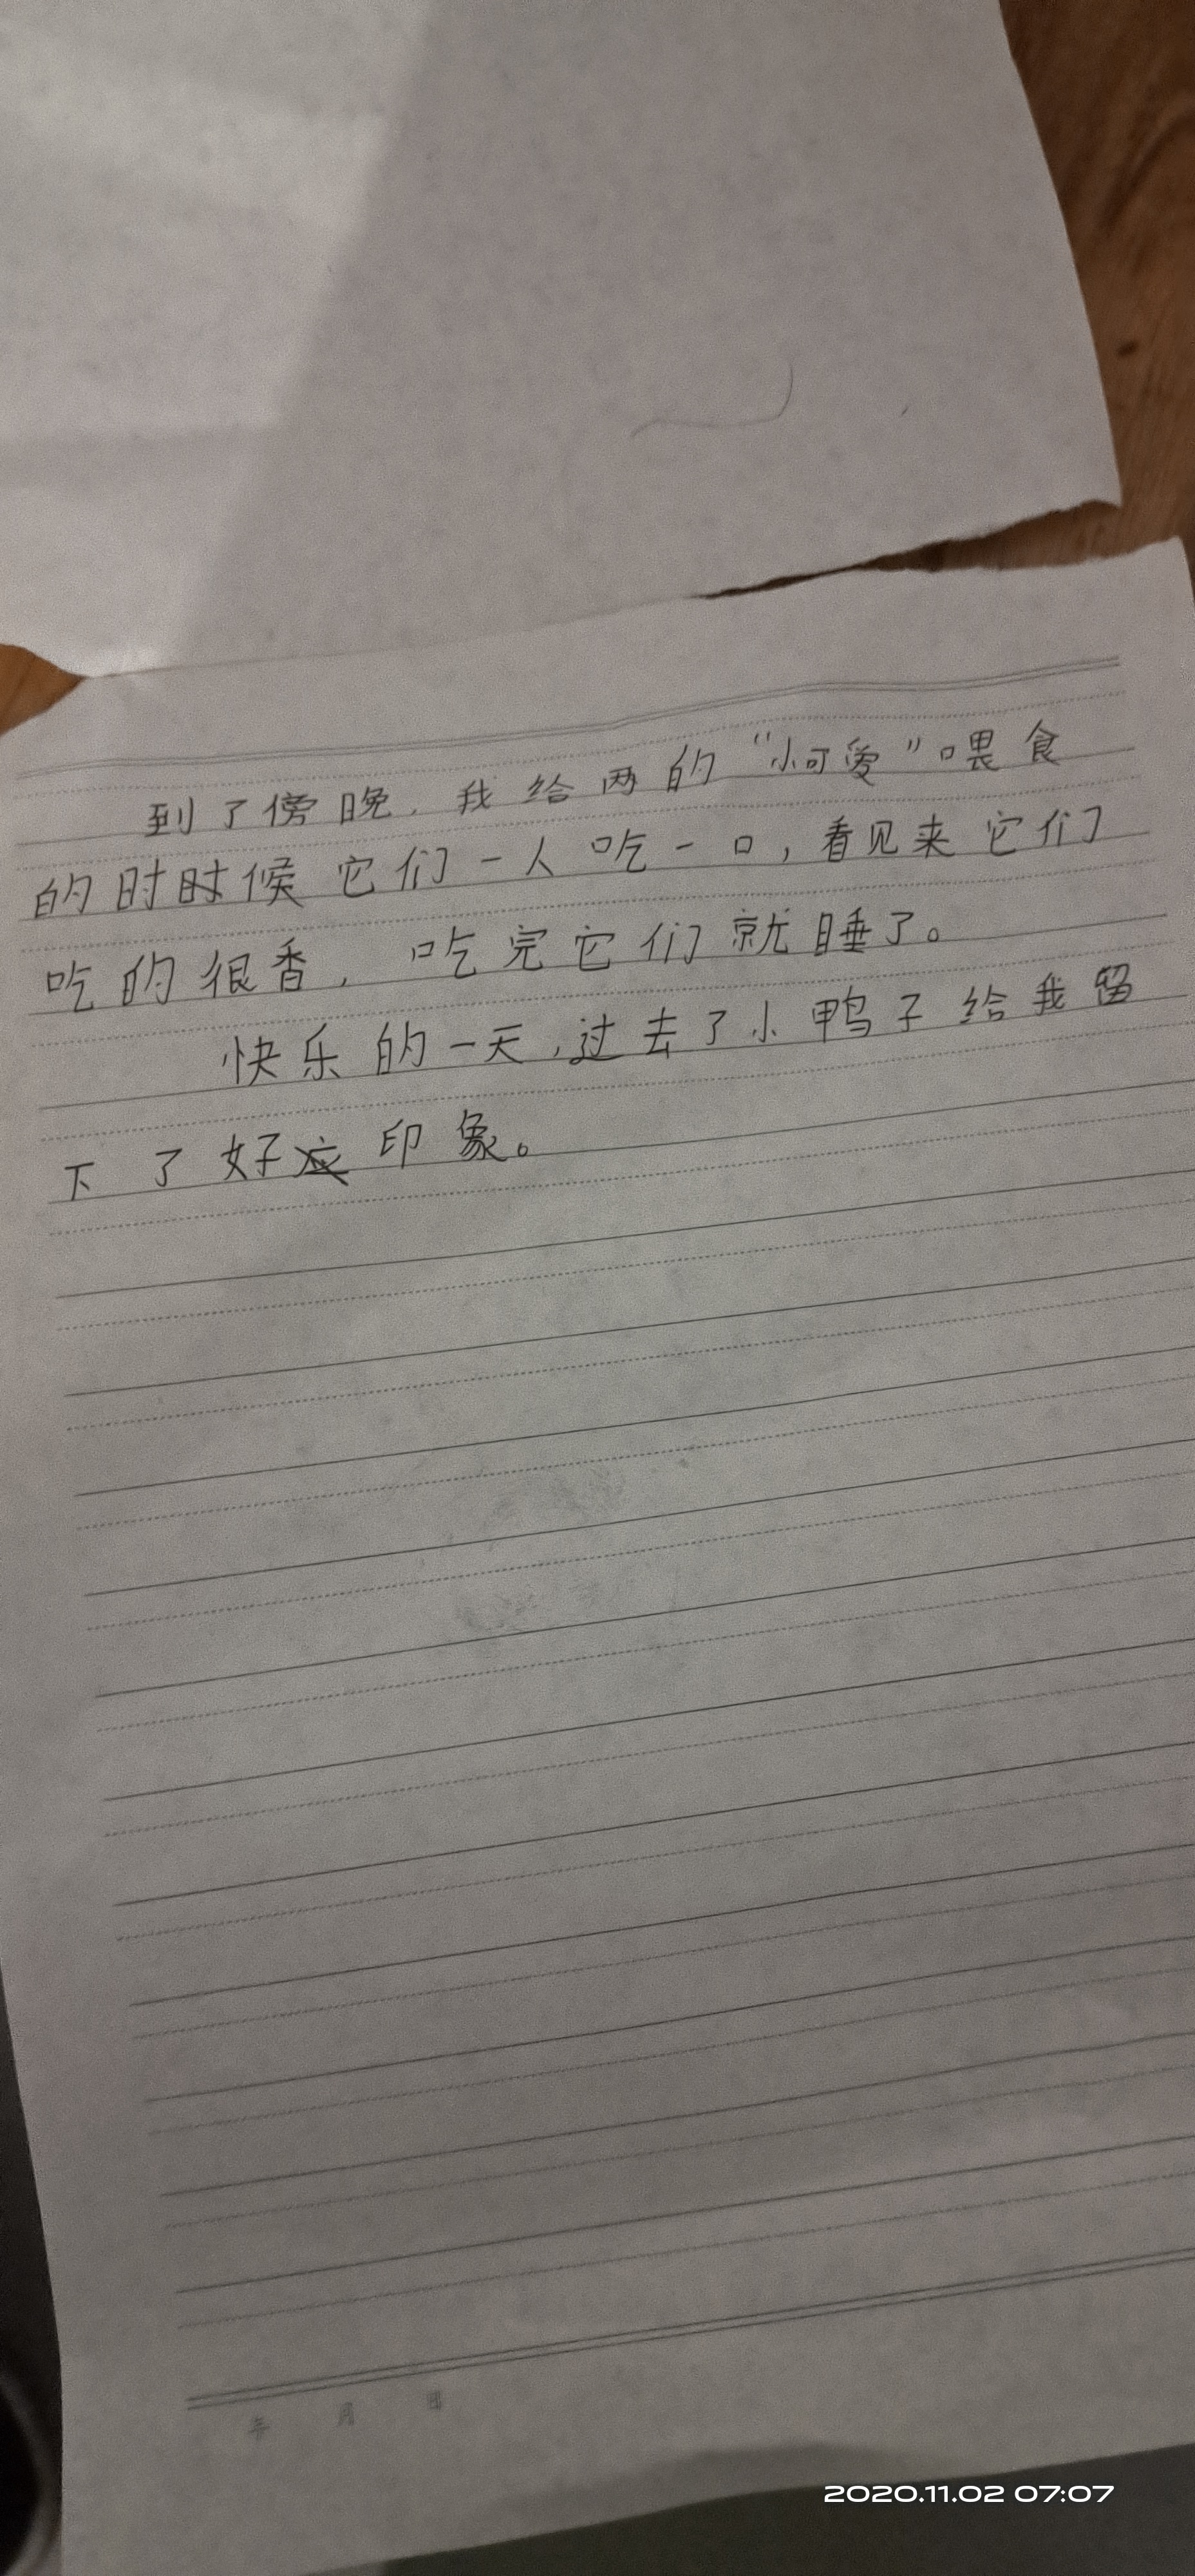 到了傍晚，我给两的“小可爱”喂食
的时时候它们一人吃一口，看见来它们
吃的很香，吃完它们就睡了。
快乐的一天，过去了小鸭子给我留
下了好印象。
年 月 日
2020.11.02 07:07